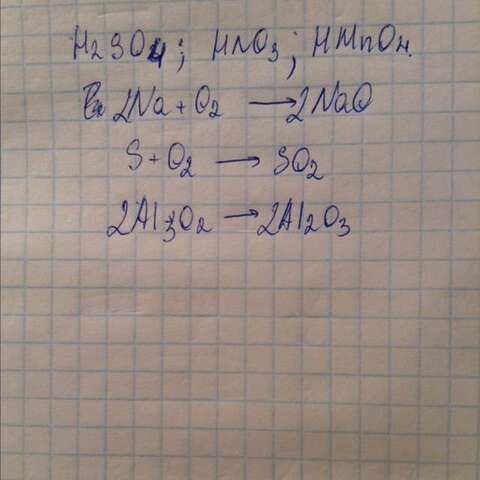 H2SO4; HNO3; HMnO4.
2Na + O2 → 2NaO
S + O2 → SO2
2Al + 3O2 → 2Al2O3